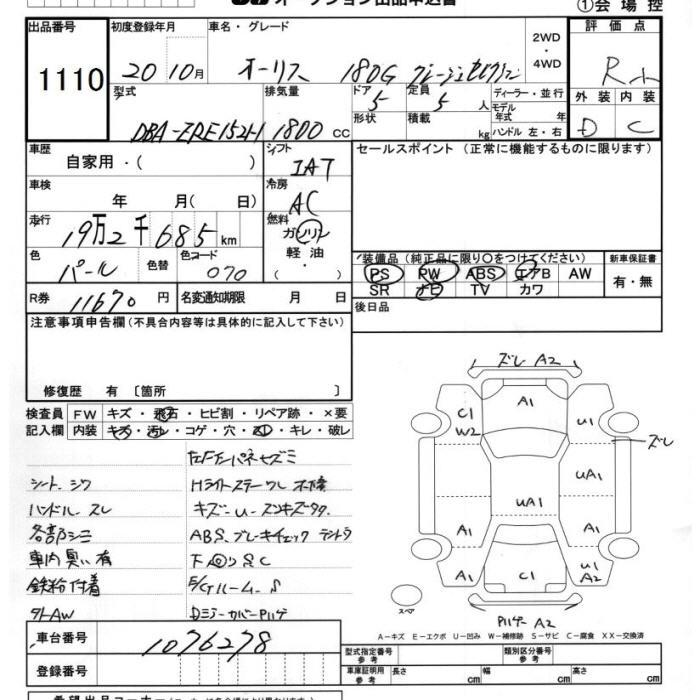 ①会場控
出品番号
1110
初度登録年月
20 10月
車名・グレード
オーリス 180G
2WD
・
4WD
評価点
R
外装 内装
D C
型式
DBA-ZRE152H
排気量
1800 cc
ドア
5
定員
5 人
形状
積載
kg
ディーラー・並行
モデル
年式 年
ハンドル 左・右
車歴
自家用・( )
シフト
IAT
セールスポイント (正常に機能するものに限ります)
車検
年 月( 日)
冷房
AC
走行
19万2千685km
燃料
ガソリン
軽油
・
色
パール
色替
色コード
070
装備品 (純正品に限り○をつけてください)
PS PW ABS エアB AW
SR ナビ TV カワ
新車保証書
有・無
R券
11670円
名変通知期限 月 日
後日品
注意事項申告欄 (不具合内容等は具体的に記入して下さい)
修復歴 有 〔箇所 〕
検査員
記入欄
FW キズ・飛石・ヒビ割・リペア跡・×要
内装 キズ・汚レ・コゲ・穴・スレ・キレ・破レ
シート シワ
ハンドル スレ
各部シミ
車内臭い有
鉄粉付着
外AW
ABS、ブレーキチェック
下回りSC
E/Gルーム S
ズレ A2
A1
C1
W2
U1
ズレ
UA1
UA1
A1
A1
A1
C1
U1
A2
スペア
A2
A-キズ E-エクボ U-凹み W-補修跡 S-サビ C-腐食 XX-交換済
車台番号
1076278
登録番号
型式指定番号
参考
類別区分番号
参考
車庫証明用
参考
長さ cm 幅 cm 高さ cm